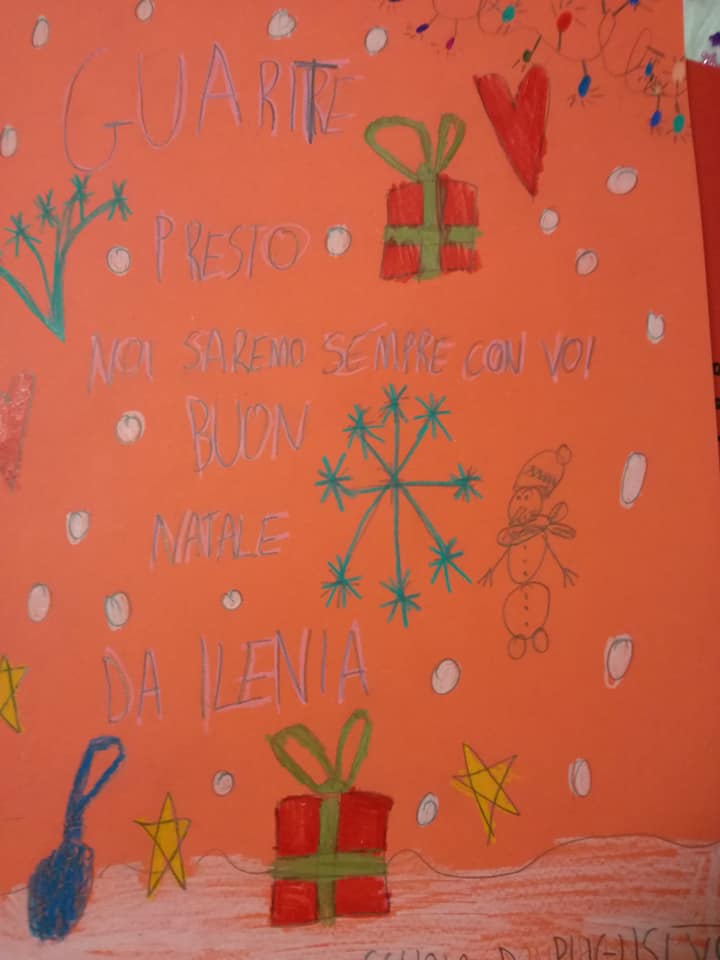 GUARITRE
PRESTO
NOI SAREMO SEMPRE CON VOI
BUON
NATALE
DA ILENIA